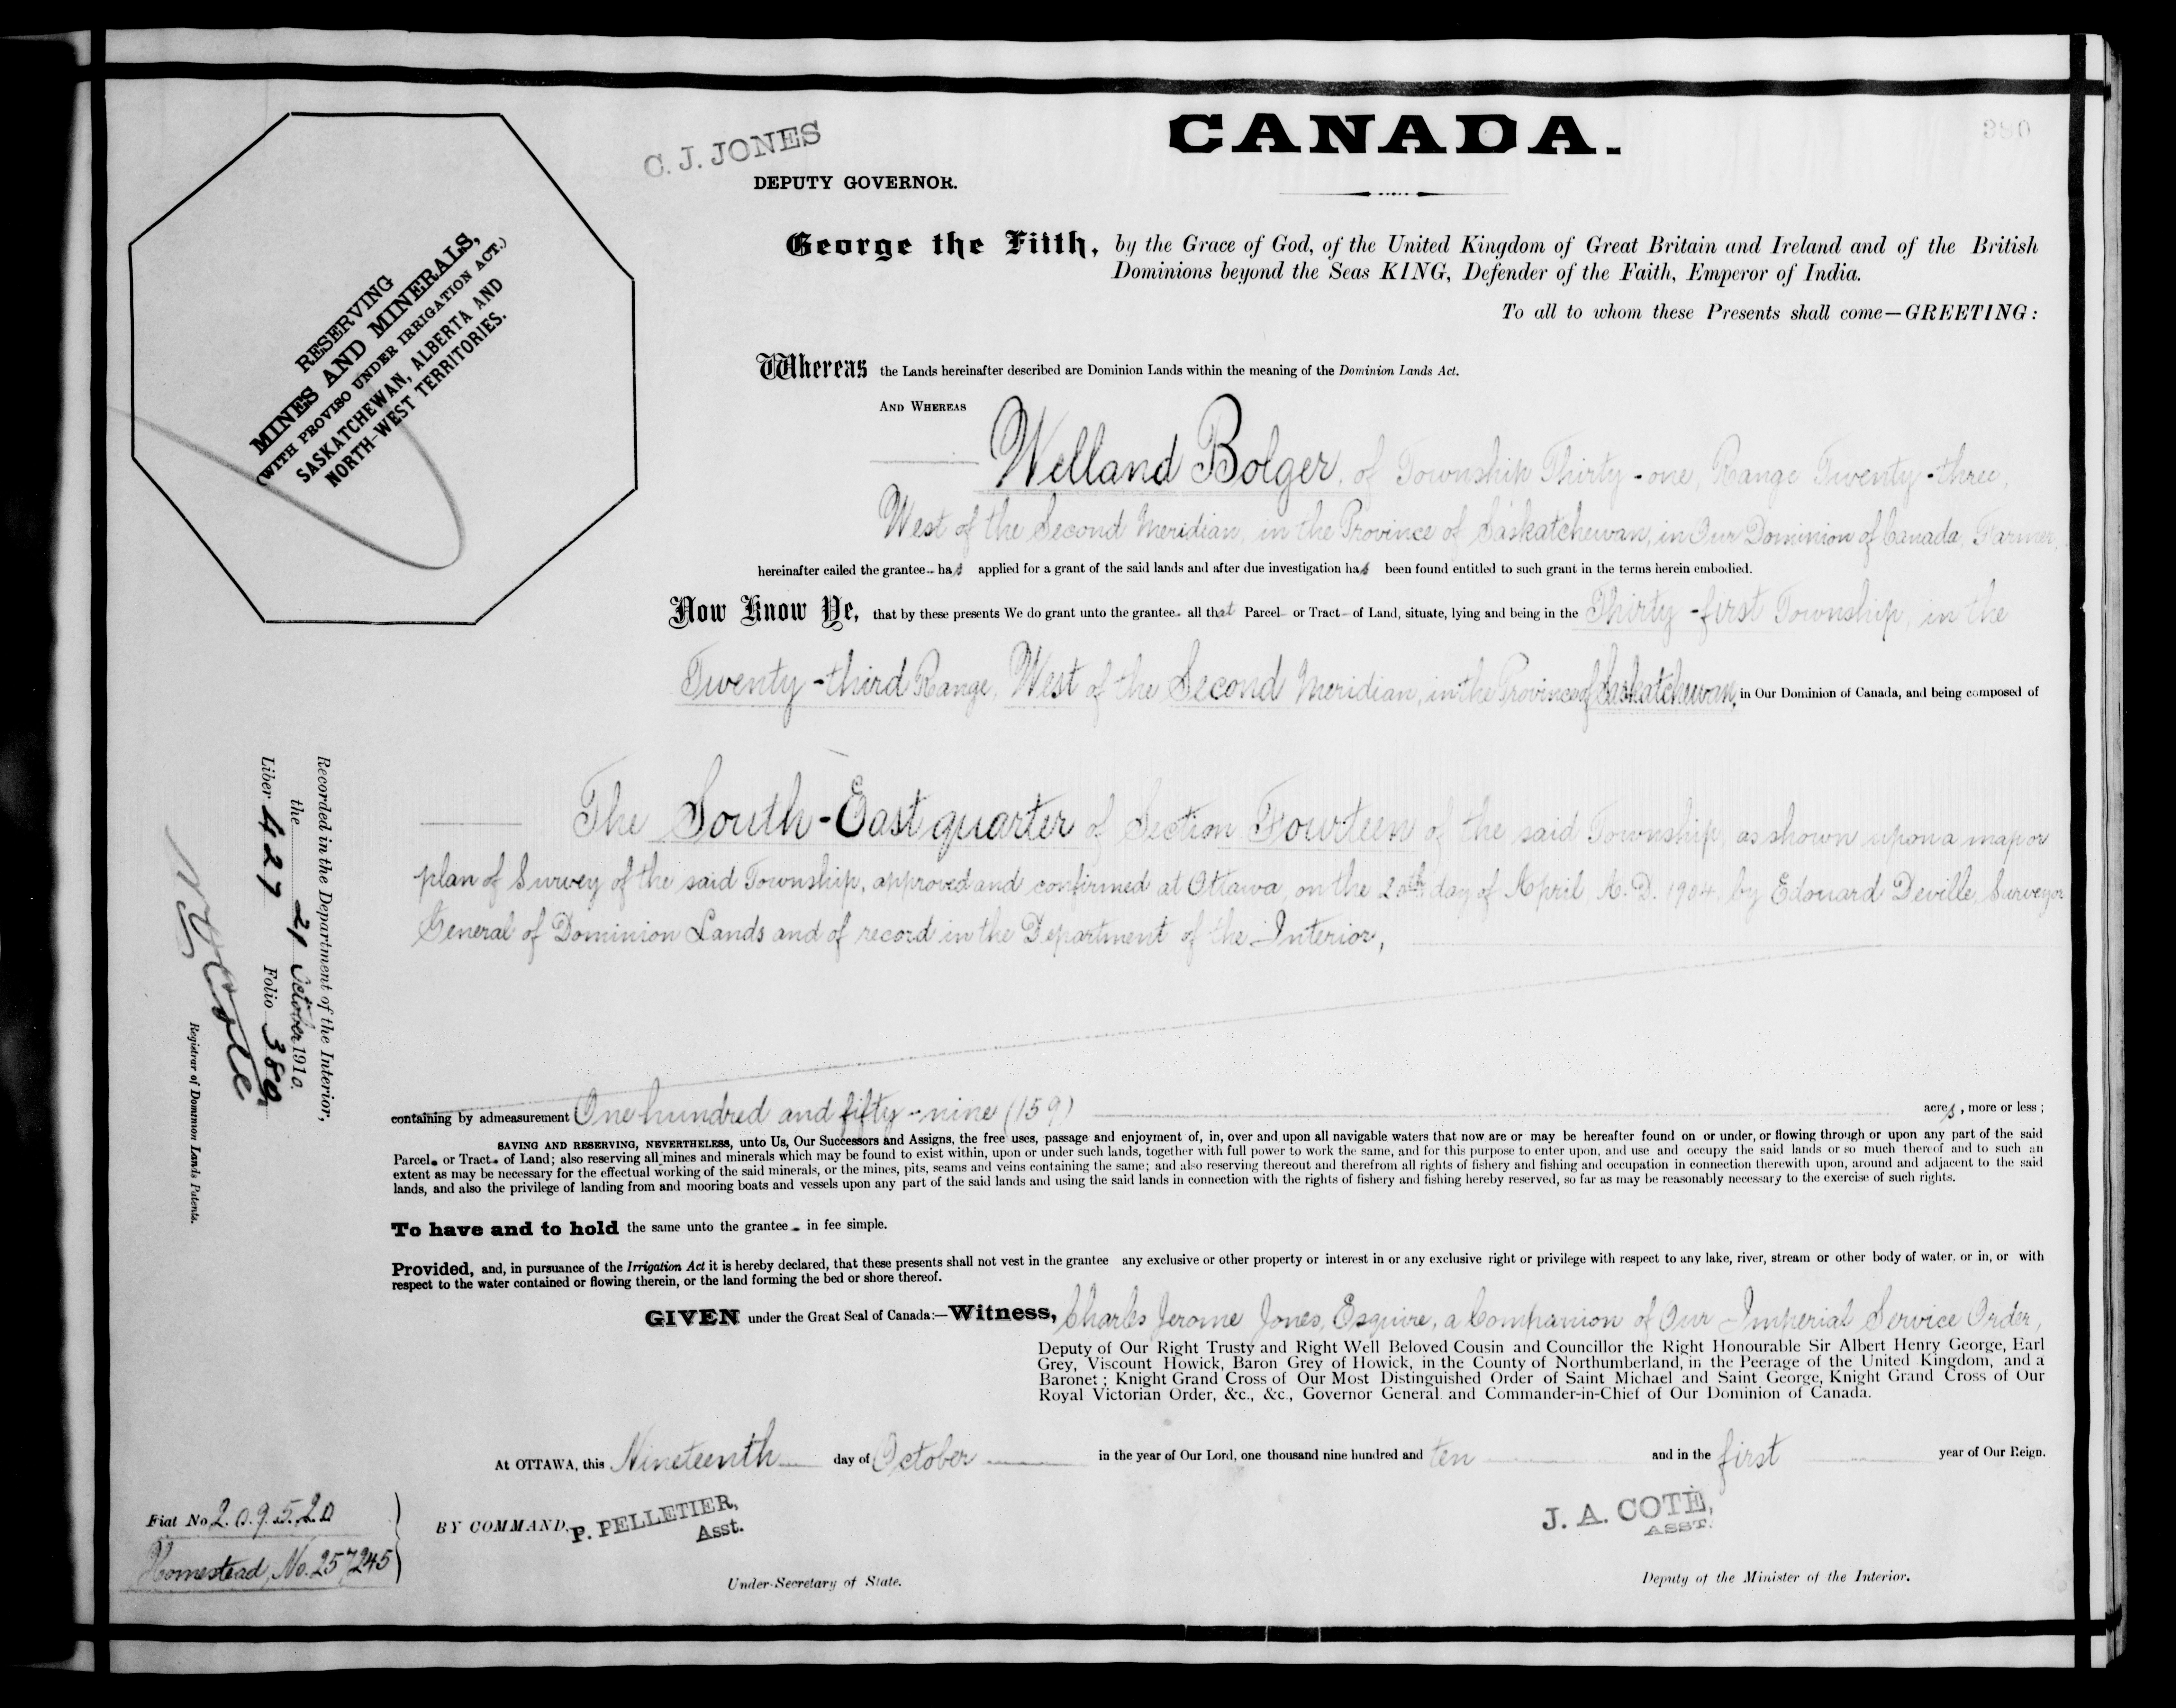 CANADA.
390
C. J. JONES
DEPUTY GOVERNOR.
George the Fifth, by the Grace of God, of the United Kingdom of Great Britain and Ireland and of the British
Dominions beyond the Seas KING, Defender of the Faith, Emperor of India.
To all to whom these Presents shall come—GREETING:
RESERVING
MINES AND MINERALS,
(WITH PROVISO UNDER IRRIGATION ACT.)
SASKATCHEWAN, ALBERTA AND
NORTH-WEST TERRITORIES.
Whereas the Lands hereinafter described are Dominion Lands within the meaning of the Dominion Lands Act.
AND WHEREAS
Welland Bolger, of Township Thirty-one, Range Twenty-three,
West of the Second Meridian, in the Province of Saskatchewan, in Our Dominion of Canada, Farmer,
hereinafter called the grantee has applied for a grant of the said lands and after due investigation has been found entitled to such grant in the terms herein embodied.
Now Know Ye, that by these presents We do grant unto the grantee all that Parcel or Tract of Land, situate, lying and being in the Thirty-first Township, in the
Twenty-third Range, West of the Second Meridian, in the Province of Saskatchewan, in Our Dominion of Canada, and being composed of
The South-East quarter of Section Fourteen of the said Township, as shown upon a map or
plan of Survey of the said Township, approved and confirmed at Ottawa, on the 20th day of April, A.D. 1904, by Edouard Deville, Surveyor
General of Dominion Lands and of record in the Department of the Interior,
containing by admeasurement One hundred and fifty-nine (159) acres, more or less;
SAVING AND RESERVING, NEVERTHELESS, unto Us, Our Successors and Assigns, the free uses, passage and enjoyment of, in, over and upon all navigable waters that now are or may be hereafter found on or under, or flowing through or upon any part of the said
Parcel or Tract of Land; also reserving all mines and minerals which may be found to exist within, upon or under such lands, together with full power to work the same, and for this purpose to enter upon, and use and occupy the said lands or so much thereof and to such an
extent as may be necessary for the effectual working of the said minerals, or the mines, pits, seams and veins containing the same; and also reserving thereout and therefrom all rights of fishery and fishing and occupation in connection therewith upon, around and adjacent to the said
lands, and also the privilege of landing from and mooring boats and vessels upon any part of the said lands and using the said lands in connection with the rights of fishery and fishing hereby reserved, so far as may be reasonably necessary to the exercise of such rights.
To have and to hold the same unto the grantee in fee simple.
Provided, and, in pursuance of the Irrigation Act it is hereby declared, that these presents shall not vest in the grantee any exclusive or other property or interest in or any exclusive right or privilege with respect to any lake, river, stream or other body of water, or in, or with
respect to the water contained or flowing therein, or the land forming the bed or shore thereof.
GIVEN under the Great Seal of Canada:—Witness, Charles Jerome Jones, Esquire, a Companion of Our Imperial Service Order,
Deputy of Our Right Trusty and Right Well Beloved Cousin and Councillor the Right Honourable Sir Albert Henry George, Earl
Grey, Viscount Howick, Baron Grey of Howick, in the County of Northumberland, in the Peerage of the United Kingdom, and a
Baronet; Knight Grand Cross of Our Most Distinguished Order of Saint Michael and Saint George, Knight Grand Cross of Our
Royal Victorian Order, &c., &c., Governor General and Commander-in-Chief of Our Dominion of Canada.
At OTTAWA, this Nineteenth day of October in the year of Our Lord, one thousand nine hundred and ten and in the first year of Our Reign.
BY COMMAND,
P. PELLETIER,
Asst.
Under-Secretary of State.
J. A. COTÉ,
ASST.
Deputy of the Minister of the Interior.
Fiat No 209520
Homestead, No. 257245
Recorded in the Department of the Interior,
the 21 October 1910.
Liber 427 Folio 380
Registrar of Dominion Lands Patents.